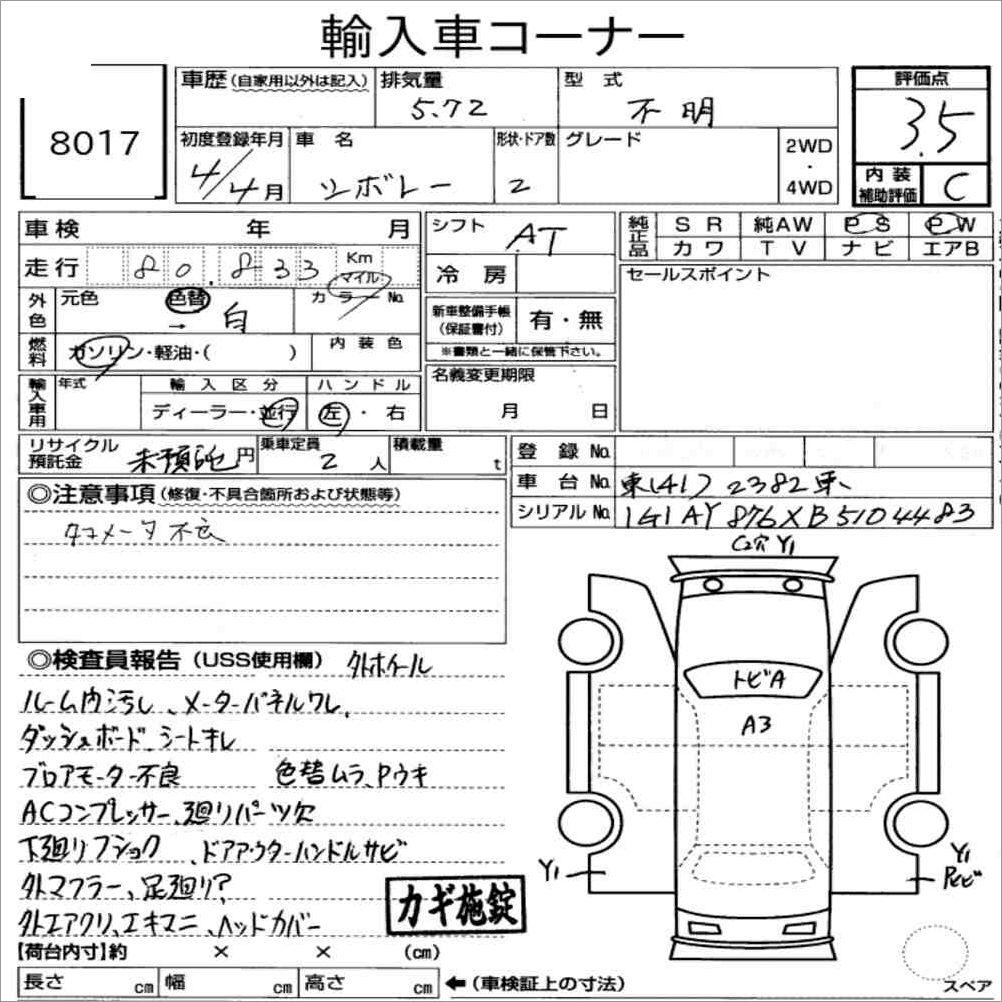 輸入車コーナー
8017
車歴(自家用以外は記入) 排気量 型式 評価点
5.72 不明 3.5
初度登録年月 車名 形状・ドア数 グレード 2WD・4WD
4/4月 シボレー 2
内装補助評価 C
車検 年 月 シフト AT
純正品 SR 純AW PS PW
カワ TV ナビ エアB
走行 80,833 Km マイル
冷房
セールスポイント
外色 元色 色替 → 白 カラーNo.
新車整備手帳(保証書付) 有・無
燃料 ガソリン・軽油・( ) 内装色
※書類と一緒に保管下さい。
輸入車用 年式 輸入区分 ハンドル
ディーラー・並行 左・右
名義変更期限
月 日
リサイクル預託金 未預託 円 乗車定員 2人 積載量 t
登録No.
車台No. 東(41)2382東
シリアルNo. 1G1AY876XB5104483
◎注意事項(修復・不具合箇所および状態等)
タコメータ不良
C2穴 Y1
◎検査員報告(USS使用欄) 外ホイール
ルーム内汚し、メーターパネルワレ、
ダッシュボード、シートキレ
ブロアモーター不良 色替ムラ、Pウキ
ACコンプレッサー、廻りパーツ欠
下廻りフショク、ドアアウターハンドルサビ
外マフラー、足廻り?
外エアクリ、エキマニ、ヘッドカバー
カギ施錠
トビA
A3
Y1
Y1
【荷台内寸】約 × × (cm)
長さ cm 幅 cm 高さ cm ←(車検証上の寸法)
スペア